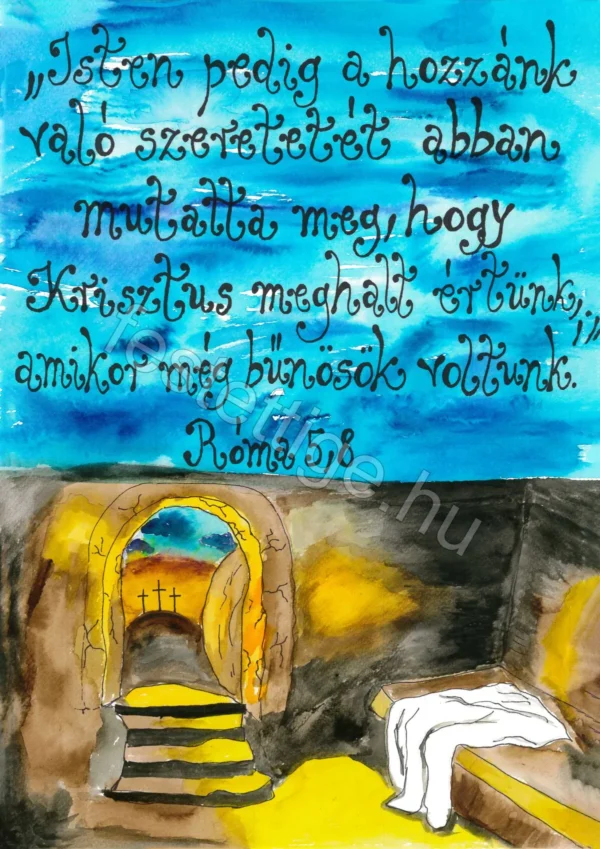 „Isten pedig a hozzánk
való szeretetét abban
mutatta meg, hogy
Krisztus meghalt értünk,
amikor még bűnösök voltunk.”
Róma 5,8
festettige.hu